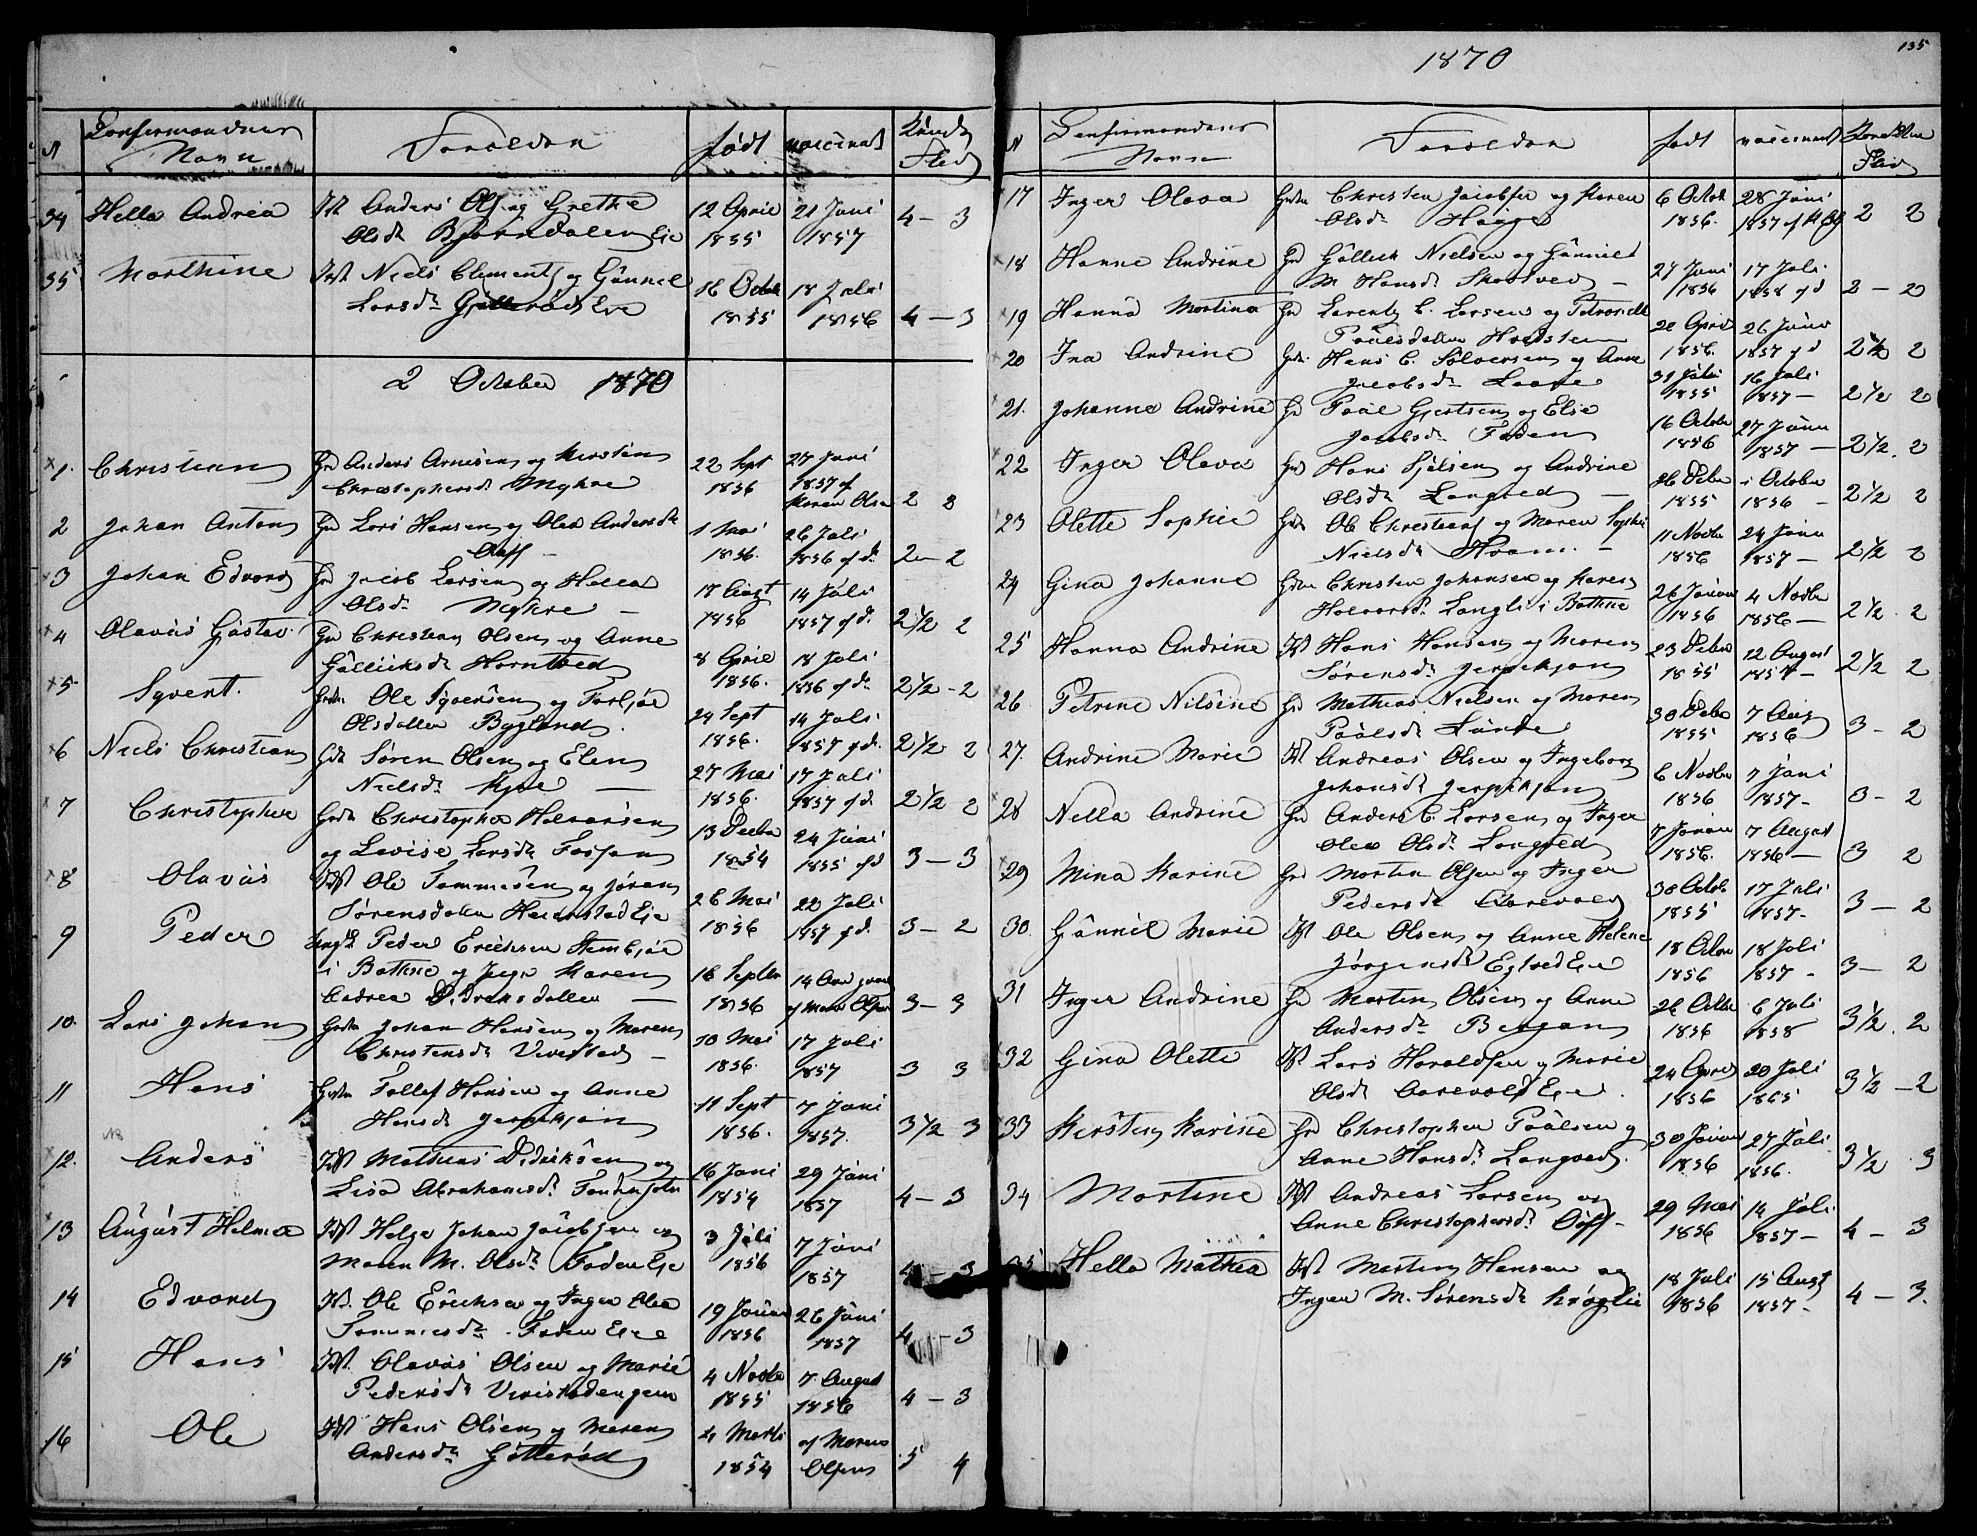 N Confirmandens Navn Forældre født vaccineret Kunds. Flid
34 Hella Andrea
Anders Ols. og Grethe
Olsdr Bjørndalen Eie
12 April 1855
21 Juni 1857
4 - 3
35 Marthine
Niels Clements. og Gunnel
Larsdr Gjetterøds Eie
16 Octob 1855
18 Juli 1856
4 - 3
2 October 1870
1. Christian
Gr Anders Arnesen og Kirsten
Christophersdr Myhre
22 Sept 1856
27 Juni 1857 af Maren Olsen
2
2 Johan Anton
Gr Lars Hansen og Olea Andersdr
1 Mai 1856.
26 Juli 1856 af do
2 - 2
3 Johan Edvard
Gr Jacob Larsen og Hella
Olsdr Myhre
17 Augt 1856
14 Juli 1857 af do.
2 1/2 2
4 Olavus Gustav
Gr Christian Olsen og Anne
Gulliksdr Horntved
8 April 1856.
18 Juli 1856 af do
2 1/2 - 2
5. Syvert.
Ole Syversen og Torbjør
Olsdatter Bygland.
24 Sept 1856.
14 Juli 1857 af do.
2 1/2 2
6 Niels Christian
Søren Olsen og Elen
Nielsdr
27 Mai 1856.
17 Juli 1857 af d.
2 1/2 2
7 Christopher
Christopher Halvorsen
og Lovise Larsdr
13 Decbr 1854
24 Juni 1855 af d
3 - 3
8 Olavus
Ole Tommesen og Jøran
Sørensdatter Eie
26 Mai 1856
22 Juli 1857 af d.
3 - 2
9 Peder
Peder Erichsen
i Bathne og Karen
Andrea Didriksdatter
16 Septbr 1856
3 - 3
10. Lars Johan
Johan Hansen og Maren
Christensdr Virestad
10 Mai 1856.
17 Juli 1857
3 3
11 Hans
Tollef Hansen og Anne
Hansdr Jerpekjøn
11 Sept 1856.
7 Juni 1857.
3 1/2 3
12. Anders
Mathias Didriksen og
Lisa Abrahamsdr
16 Juni 1854
29 Juni 1857
4 - 3
13 August Helmer
Helge Johan Jacobsen og
Maren M. Olsdr Foden Eie
3 Juli 1856
7 Juni 1857
4 - 3
14 Edvard
Ole Erichsen og Inger Olea
Tommesdr. Foden Eie
19 Januar 1856
26 Juni 1857
4 - 3
15 Hans
Olavus Olsen og Marie
Pedersdr
4 Novbr 1855
7 August 1856
4 - 3
16 Ole
Hans Olsen og Maren
Andersdr Gjetterød
21 Marts 1854
af Maren Olsen
5 4
135
1870
N Confirmandens Navn Forældre født vaccineret Flid
17 Inger Olava
Christen Jacobsen og Karen
Olsdr
6 Octob 1856.
28 Juni 1857
2 2
18 Hanne Andrine
Gr Gullich Nielsen og Gunnild
M. Hansdr Skostved
27 Juni 1856
17 Juli 1858 af d
2 - 2
19 Hanna Martina
Gr Larentz C. Larsen og
Paulsdatter
20 April 1856.
26 Juni 1857 af d
2 1/2 2
20 Ina Andrine
Hans C. Sølversen og Anne
Jacobsdr Laane
31 Juli 1855
16 Juli 1857 -
2 1/2 2
21. Johanne Andrine
Gr Paul Gjertsen og Else
Jacobsdr Foden
16 Octobr 1856
27 Juni 1857 -
2 1/2. 2
22 Inger Olava
Hans og Andrine
Olsdr Langved
26 Debr 1855
October 1856 -
2 1/2 2
23 Olette Sophie
Ole Christians. og Maren Sophie
Nielsdr Hvam. -
11 Novbr 1856
24 Juni 1857 -
2 1/2 2
24 Gina Johanne
Christen Johansen og Karen
Halvorsdr Langli i Bathne
26 Januar 1856
4 Novbr 1856 -
2 1/2. 2
25 Hanna Andrine
Hans Hansen og Maren
Sørensdr Jerpekjøn
23 Debr 1855
12 August
2 1/2 2
26. Petrine Nilsine
Gr Mathias Nielsen og Maren
Paulsdr Lunde
30 Debr 1855
7 Aug 1856
3 - 2
27. Andrine Marie
Andreas Olsen og Ingeborg
Johansdr Jerpekjøn
6 Novbr 1856
7 Juni 1857 -
3 - 2
28 Nella Andrine
Gr Anders C. Larsen og Inger
Olea Olsdr Langved
7 Januar 1856.
7 August 1856 -
3 2
29 Mina Karine
Gr Morten Olsen og Inger
Pedersdr Aarevold
30 Octob 1855
17 Juli 1857 -
3 - 2
30. Gunnil Marie
Ole Olsen og Anne Helene
Jørgensdr Egtved Eie
18 Octbr 1856
18 Juli 1857 -
3 - 2
31 Inger Andrine
Gr Morten Olsen og Anne
Andersdr Bergan
26 Octbr 1856
6 Juli 1858
3 1/2. 2
32 Gina Olette
Lars Haraldsen og Marie
Olsdr Aarevold Eie.
24 April 1856
20 Juli 1865
3 1/2 - 2
33 Kirsten Karine
Gr Christopher Paulsen og
Anne Hansdr Langved.
30 Januar 1856
27 Juli 1856.
3 1/2. 3
34 Martine
Andreas Larsen og
Anne Christophersdr
29 Mai 1856
14 Juli 1857 -
4 - 3
35 Hella Mathea
Morten Hansen og
Inger M. Sørensdr Krøglie
18 Juli 1856
15 Augt 1857 -
4 - 3.